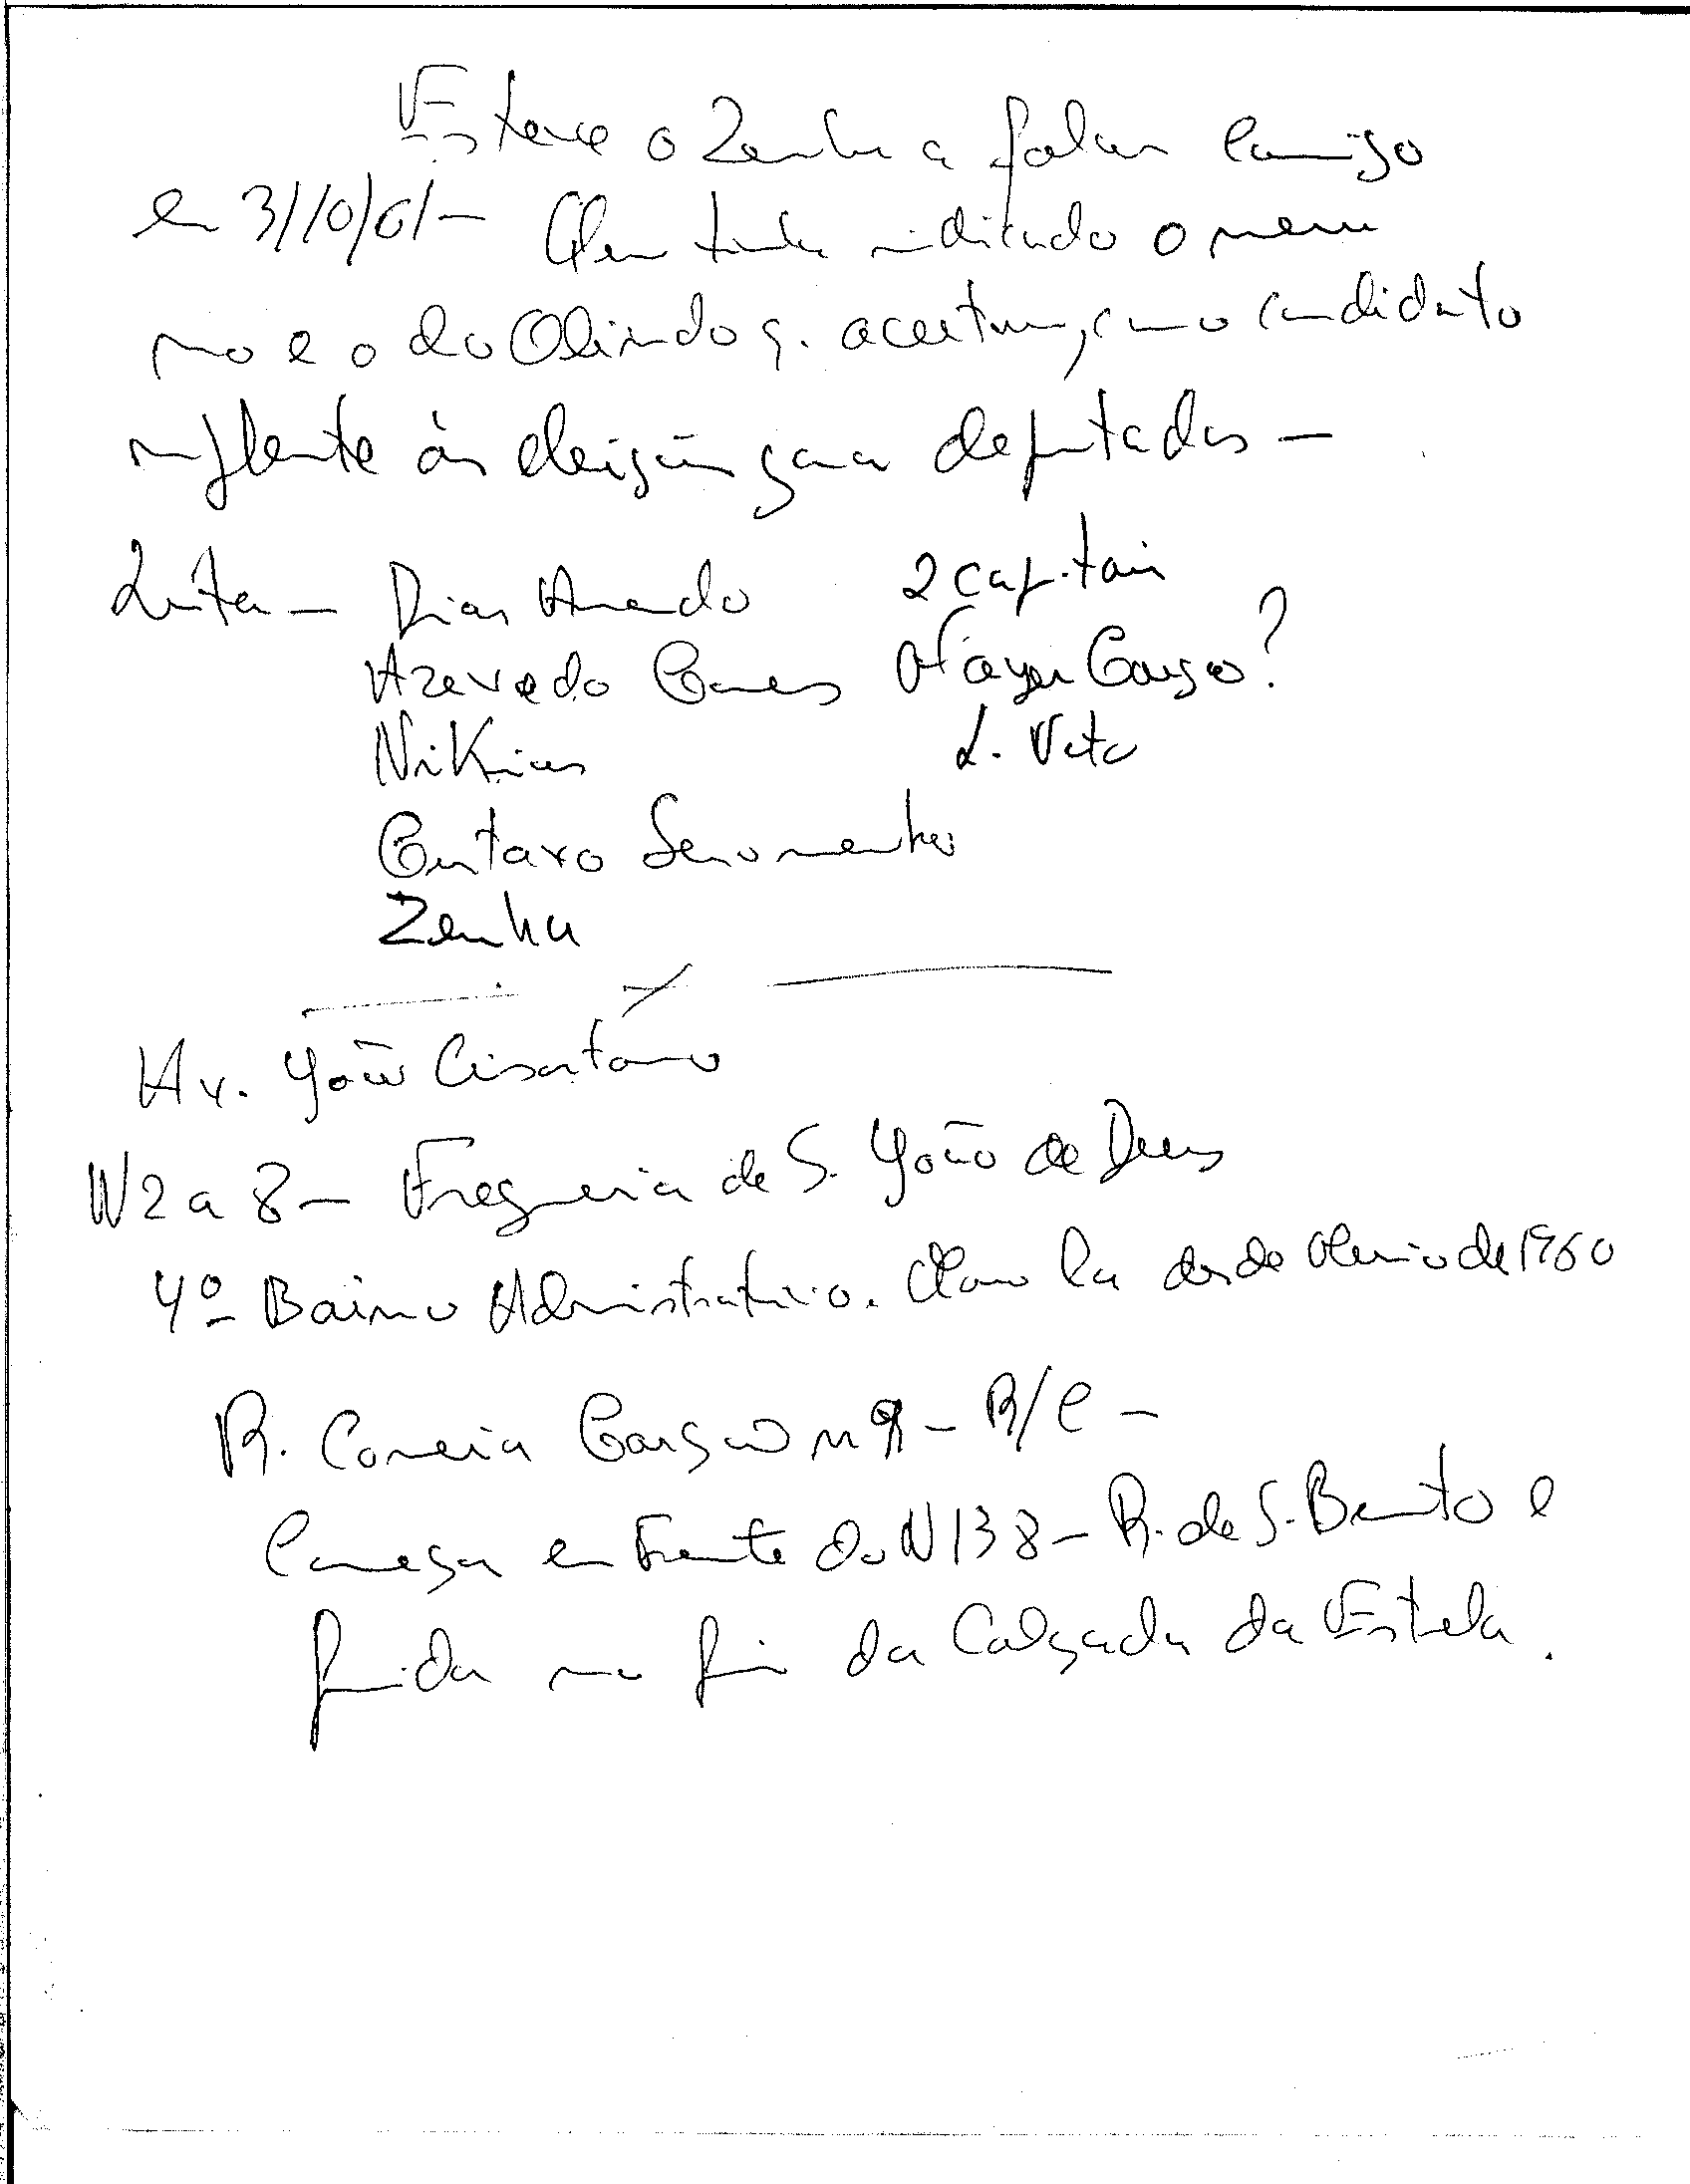 Esteve o Zenha a falar comigo
em 3/10/61 – Quem tinha indicado o meu
no e o do Olindo p. aceitar, como candidato
às eleições para deputados –
Lista – Dias Amado 2 capitais
Azevedo Gomes Mayer Garção?
Nikias L. Vito
Gustavo Soromenho
Zenha
Av. João Crisóstomo
N 2 a 8 – Freguesia de S. João de Deus
4º Bairro Administrativo. Moro lá desde Maio de 1960
R. Correia Garção nº 9 – R/C –
Começa em Frente do N 138 – R. de S. Bento e
finda no fim da Calçada da Estrela.